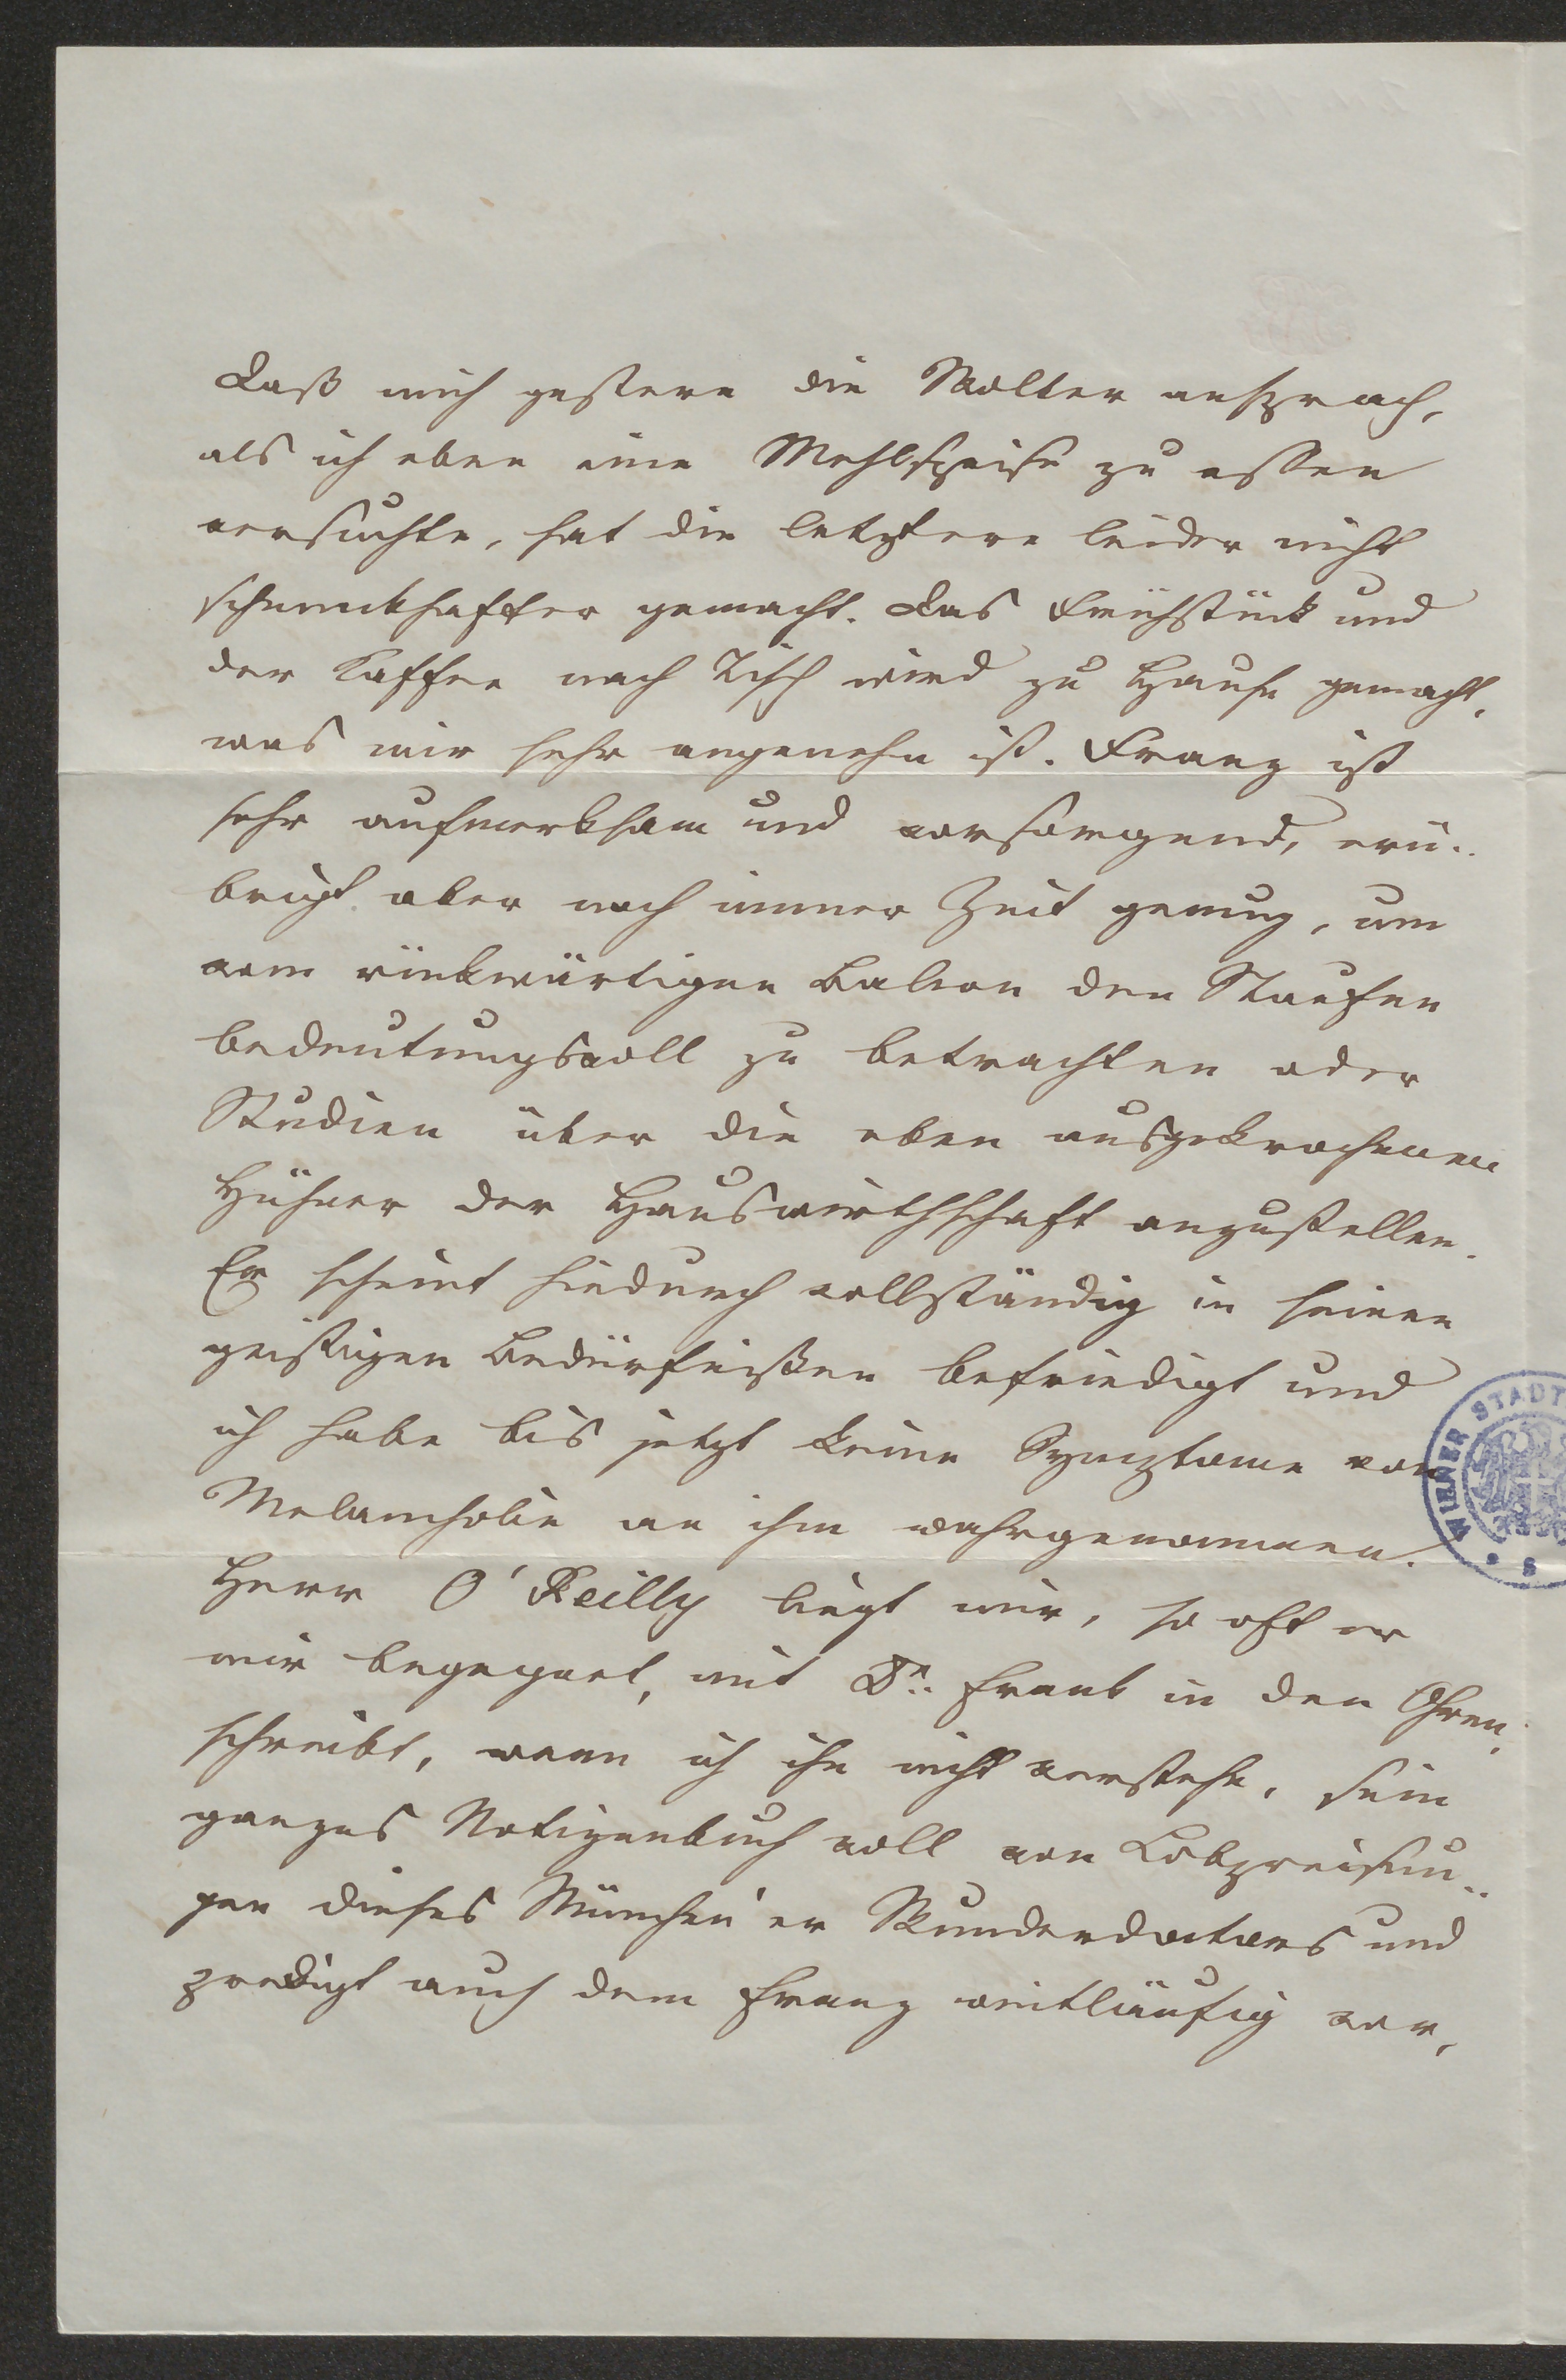 Daß mich gestern die Wolter ansprach,
als ich eben eine Mehlspeise zu essen
versuchte, hat die letztere leider nicht
schmackhafter gemacht. Das Frühstück und
der Kaffee nach Tisch wird zu Hause gemacht,
was mir sehr angenehm ist. Franz ist
sehr aufmerksam und vorsorgend, erü-
brigt aber noch immer Zeit genug, um
vom rückwärtigen Balcon den Staufen
bedeutungsvoll zu betrachten oder
Studien über die eben ausgekrochenen
Hühner der Hauswirthschaft anzustellen.
Er scheint hiedurch vollständig in seinen
geistigen Bedürfnißen befriedigt und
ich habe bis jetzt keine Symptome von
Melancholie an ihm wahrgenommen.
Herr O'Reilly liegt mir, so oft er
mir begegnet, mit Dr. Frank in den Ohren,
schreibt, wenn ich ihn nicht verstehe, sein
ganzes Notizenbuch voll von Lobpreisun-
gen dieses München'er Wunderdoctors und
predigt auch dem Franz weitläufig vor,
WIENER STADT